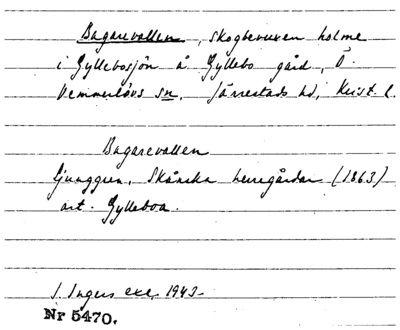 Bagarevallen, skogbevuxen holme
i Gyllebosjön å Gyllebo gård, Ö.
Vemmerlövs sn, Järrestads hd, Krist. l.
Bagarevallen
Ljunggren, Skånska herregårdar (1863)
art. Gylleboa.
I. Ingers exc. 1943
Nr 5470.